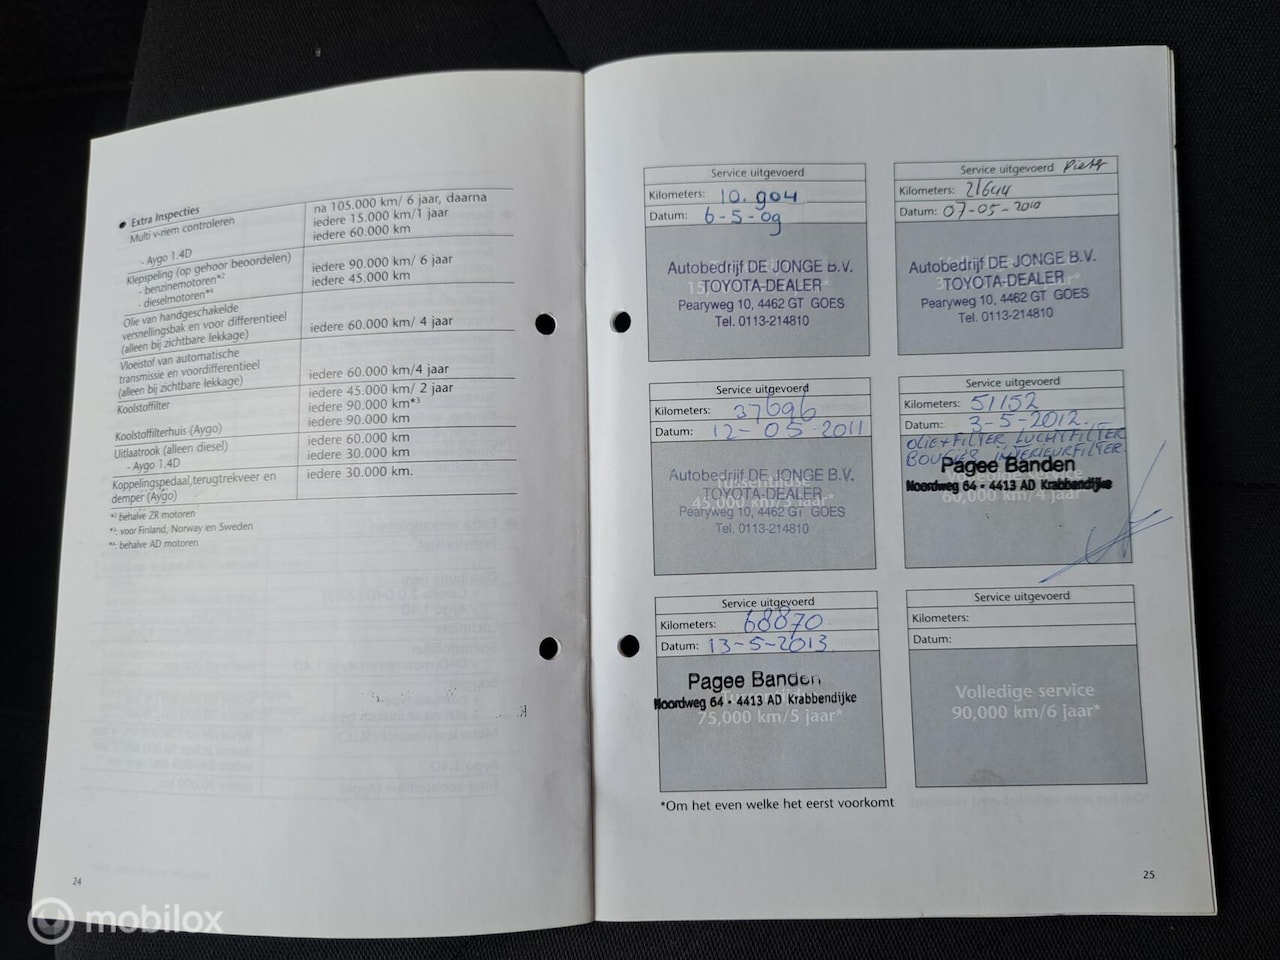 ● Extra Inspecties
Multi v-riem controleren
na 105.000 km/ 6 jaar, daarna
iedere 15.000 km/1 jaar
- Aygo 1.4D
iedere 60.000 km
Klepspeling (op gehoor beoordelen)
- benzinemotoren*²
iedere 90.000 km/ 6 jaar
- dieselmotoren*⁴
iedere 45.000 km
Olie van handgeschakelde
versnellingsbak en voor differentieel
(alleen bij zichtbare lekkage)
iedere 60.000 km/ 4 jaar
Vloeistof van automatische
transmissie en voordifferentieel
(alleen bij zichtbare lekkage)
iedere 60.000 km/4 jaar
Koolstoffilter
iedere 45.000 km/ 2 jaar
iedere 90.000 km*³
Koolstoffilterhuis (Aygo)
iedere 90.000 km
Uitlaatrook (alleen diesel)
iedere 60.000 km
- Aygo 1.4D
iedere 30.000 km
Koppelingspedaal,terugtrekveer en
demper (Aygo)
iedere 30.000 km.
*² behalve ZR motoren
*³: voor Finland, Norway en Sweden
*⁴ behalve AD motoren
24
Service uitgevoerd
Kilometers: 10.904
Datum: 6-5-09
Autobedrijf DE JONGE B.V.
TOYOTA-DEALER
Pearyweg 10, 4462 GT GOES
Tel. 0113-214810
Service uitgevoerd Pieter
Kilometers: 21644
Datum: 07-05-2010
Autobedrijf DE JONGE B.V.
TOYOTA-DEALER
Pearyweg 10, 4462 GT GOES
Tel. 0113-214810
Service uitgevoerd
Kilometers: 37696
Datum: 12-05-2011
Autobedrijf DE JONGE B.V.
TOYOTA-DEALER
45,000 km/3 jaar*
Pearyweg 10, 4462 GT GOES
Tel. 0113-214810
Service uitgevoerd
Kilometers: 51152
Datum: 3-5-2012
OLIE+FILTER LUCHTFILTER
BOUGIES INTERIEURFILTER
Pagee Banden
Noordweg 64 • 4413 AD Krabbendijke
60,000 km/4 jaar*
Service uitgevoerd
Kilometers: 68870
Datum: 13-5-2013
Pagee Banden
Noordweg 64 • 4413 AD Krabbendijke
75,000 km/5 jaar*
Service uitgevoerd
Kilometers:
Datum:
Volledige service
90,000 km/6 jaar*
*Om het even welke het eerst voorkomt
25
mobilox